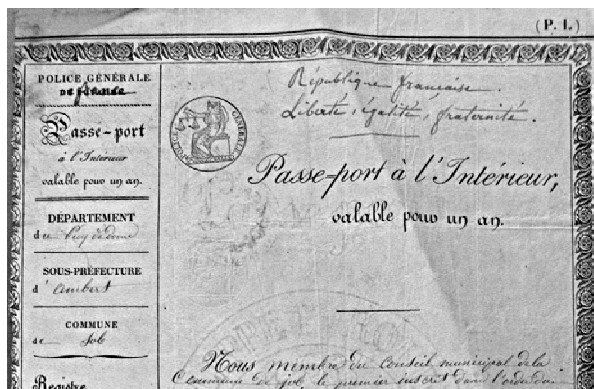 (P. I.)
POLICE GÉNÉRALE
DE France
Passe-port
à l'Intérieur
valable pour un an.
DÉPARTEMENT
du Puy de dome
SOUS-PRÉFECTURE
d' ambert
COMMUNE
de Job
Registre
République française.
Liberté, égalité, fraternité.
POLICE GÉNÉRALE
Passe-port à l'Intérieur,
valable pour un an.
Nous membre du Conseil municipal de la
Commune de Job, le premier inscrit dans l'ordre du